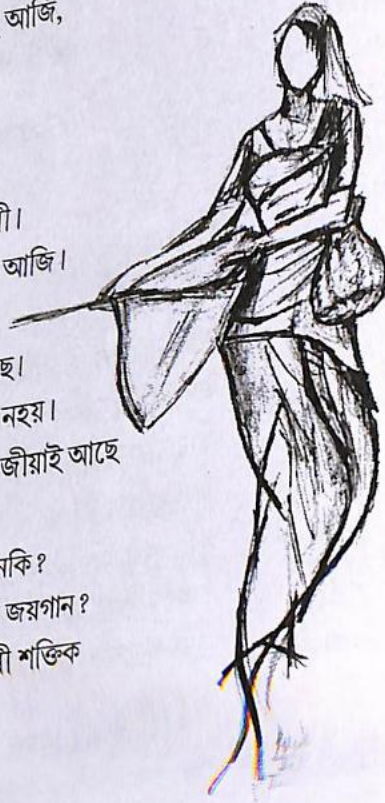 আজি,
আজি।
নহয়।
জীয়াই আছে
জয়গান?
শক্তিক